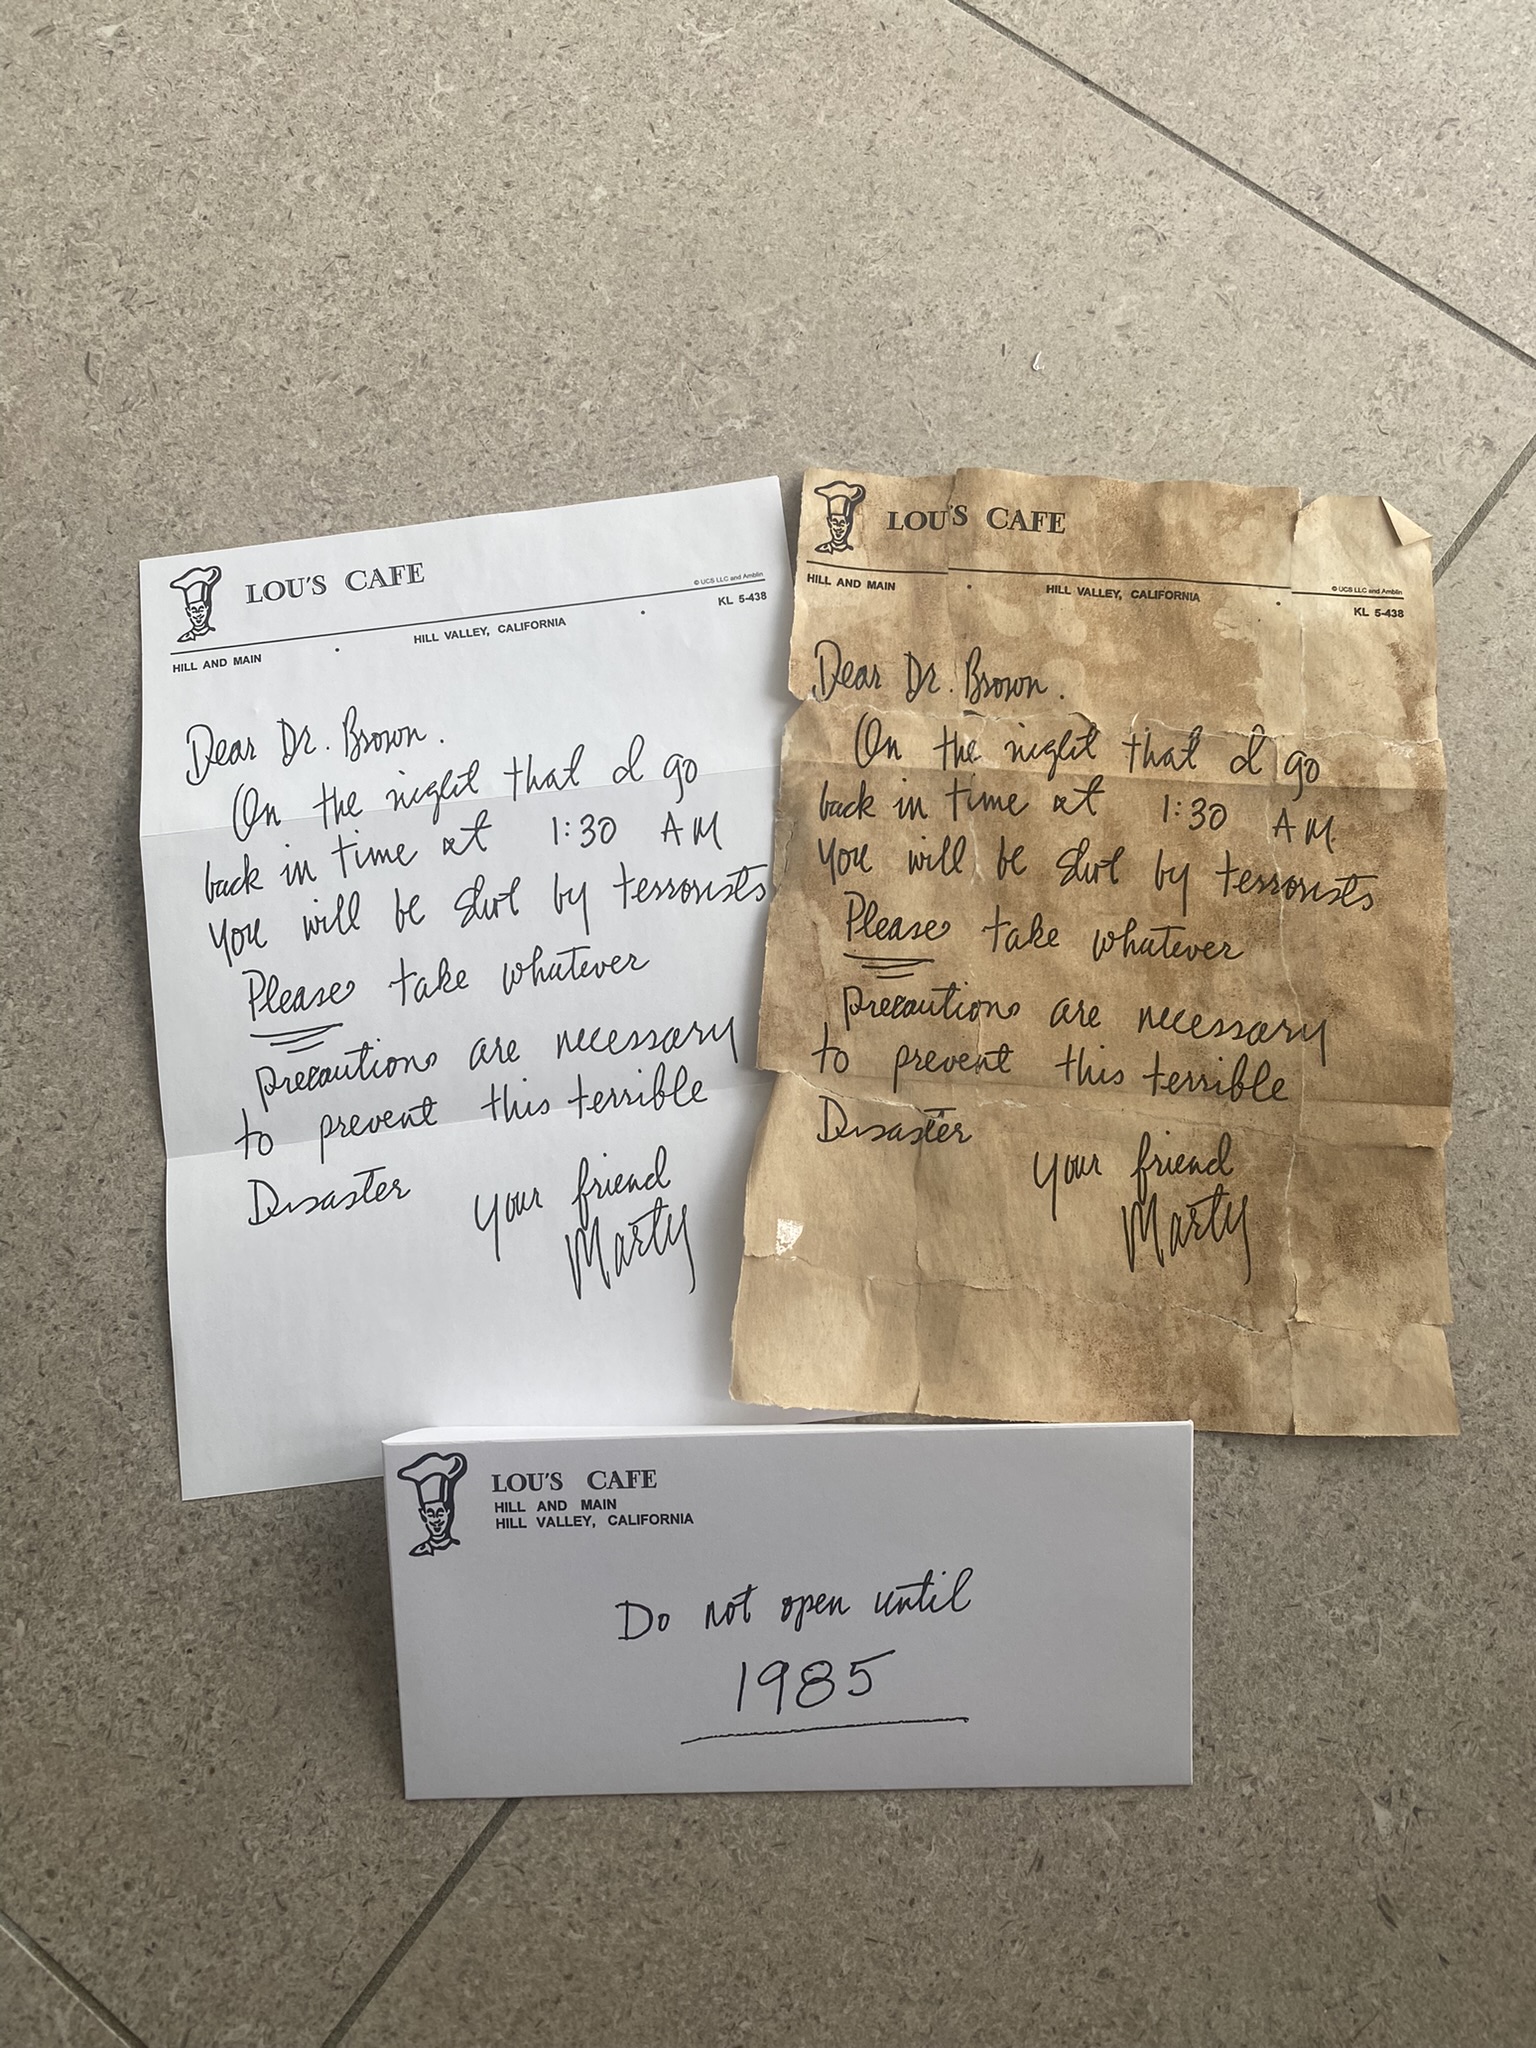 LOU'S CAFE
© UCS LLC and Amblin
HILL AND MAIN
HILL VALLEY, CALIFORNIA
KL 5-438
Dear Dr. Brown.
On the night that I go
back in time at 1:30 AM
You will be shot by terrorists
Please take whatever
precautions are necessary
to prevent this terrible
Disaster
Your friend
Marty
LOU'S CAFE
© UCS LLC and Amblin
HILL AND MAIN
HILL VALLEY, CALIFORNIA
KL 5-438
Dear Dr. Brown.
On the night that I go
back in time at 1:30 AM.
You will be shot by terrorists
Please take whatever
precautions are necessary
to prevent this terrible
Disaster
Your friend
Marty
LOU'S CAFE
HILL AND MAIN
HILL VALLEY, CALIFORNIA
Do not open until
1985